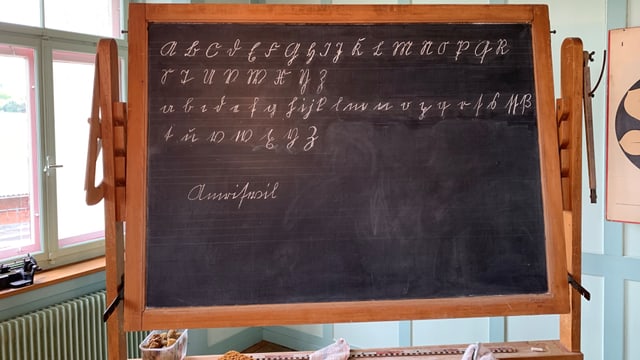 A B C D E F G H I J K L M N O P Q R
S T U V W X Y Z
a b c d e f g h i j k l m n o p q r s s ss ß
t u v w x y z
Amriswil